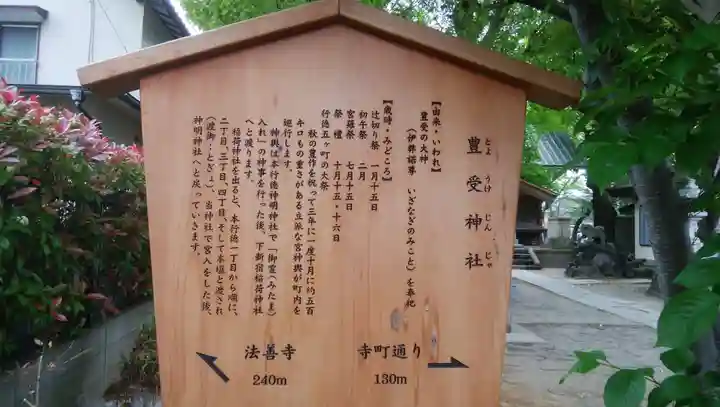 豊受神社
とようけじんじゃ
【由来・いわれ】
豊受の大神
(伊弉諾尊 いざなぎのみこと)を奉祀
【歳時・みどころ】
辻切り祭 一月十五日
初午祭 二月
宮薙祭 七月十五日
祭禮 十月十五・十六日
行徳五ヶ町の大祭
秋の豊作を祝って三年に一度十月に約五百
キロもの重さがある立派な宮神輿が町内を
巡行します。
神輿は本行徳神明神社で「御霊(みたま)
入れ」の神事を行った後、下新宿稲荷神社
へと渡ります。
稲荷神社を出ると、本行徳一丁目から順に、
二丁目、三丁目、四丁目、そして本塩と渡され
(渡御・とぎょ)、当神社で宮入をした後、
神明神社へと戻っていきます。
法善寺
240m
寺町通り
130m